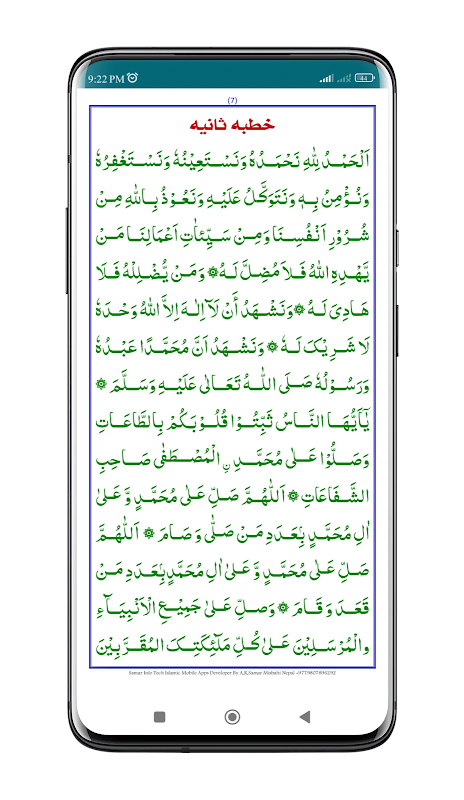 9:22 PM
44
(7)
خطبه ثانیه
اَلْحَمْدُ لِلّٰهِ نَحْمَدُهٗ وَنَسْتَعِيْنُهٗ وَنَسْتَغْفِرُهٗ
وَنُؤْمِنُ بِهٖ وَنَتَوَكَّلُ عَلَيْهِ وَنَعُوْذُ بِاللّٰهِ مِنْ
شُرُوْرِ اَنْفُسِنَا وَمِنْ سَيِّئَاتِ اَعْمَالِنَا مَنْ
يَّهْدِهِ اللّٰهُ فَلَا مُضِلَّ لَهٗ ۞ وَمَنْ يُّضْلِلْهُ فَلَا
هَادِىَ لَهٗ ۞ وَنَشْهَدُ أَنْ لَآ اِلٰهَ اِلاَّ اللّٰهُ وَحْدَهٗ
لَا شَرِيْكَ لَهٗ ۞ وَنَشْهَدُ اَنَّ مُحَمَّدًا عَبْدُهٗ
وَرَسُوْلُهٗ صَلَى اللّٰهُ تَعَالٰى عَلَيْهِ وَسَلَّمَ ۞
يٰٓاَيُّهَا النَّاسُ ثَبِّتُوْا قُلُوْبَكُمْ بِالطَّاعَاتِ
وَصَلُّوْا عَلٰى مُحَمَّدِ نِ الْمُصْطَفٰى صَاحِبِ
الشَّفَاعَاتِ ۞ اَللّٰهُمَّ صَلِّ عَلٰى مُحَمَّدٍ وَّ عَلٰى
اٰلِ مُحَمَّدٍ بِعَدَدِ مَنْ صَلّٰى وَ صَامَ ۞ اَللّٰهُمَّ
صَلِّ عَلٰى مُحَمَّدٍ وَّ عَلٰى اٰلِ مُحَمَّدٍ بِعَدَدِ مَنْ
قَعَدَ وَ قَامَ ۞ وَصَلِّ عَلٰى جَمِيْعِ الْاَنْبِيَآءِ
والْمُرْسَلِيْنَ عَلٰى كُلِّ مَلٰٓئِكَتِكَ الْمُقَرَّبِيْنَ
Samar Info Tech Islamic Mobile Apps Developer By A.R.Samar Misbahi Nepal +9779807896292